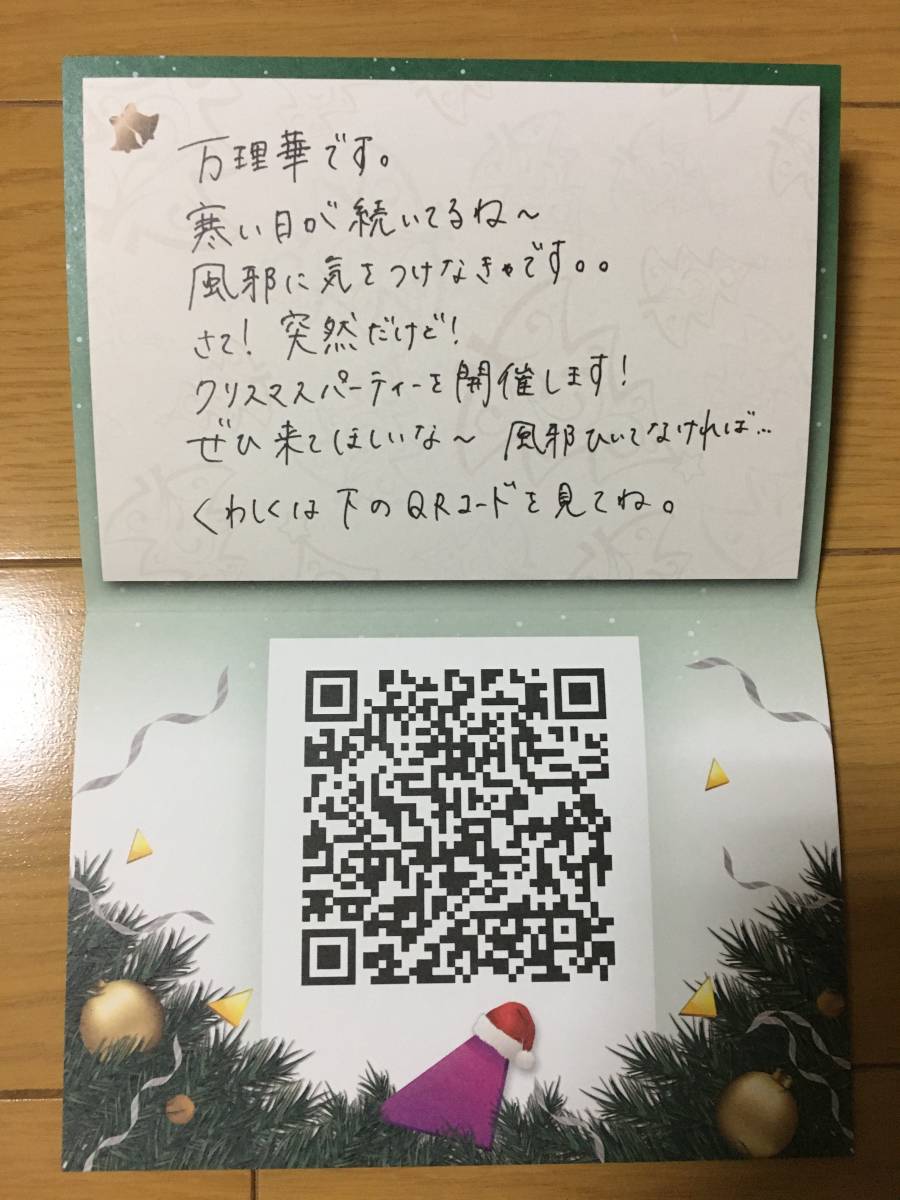 万理華です。
寒い日が続いてるね〜
風邪に気をつけなきゃです。。
さて！突然だけど！
クリスマスパーティーを開催します！
ぜひ来てほしいな〜 風邪ひいてなければ…
くわしくは下のQRコードを見てね。